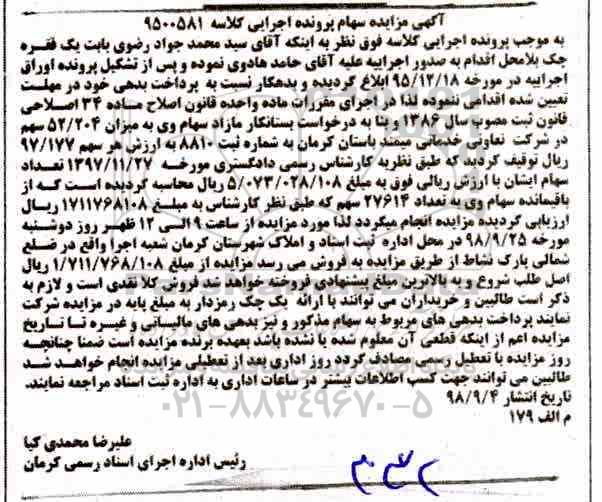 آگهی مزایده سهام پرونده اجرایی کلاسه ۹۵۰۰۵۸۱
به موجب پرونده اجرایی کلاسه فوق نظر به اینکه آقای سید محمد جواد رضوی بابت یک فقره
چک بلامحل اقدام به صدور اجراییه علیه آقای حامد هادوی نموده و پس از تشکیل پرونده اوراق
اجراییه در مورخه ۹۵/۱۲/۱۸ ابلاغ گردیده و بدهکار نسبت به پرداخت بدهی خود در مهلت
تعیین شده اقدامی ننموده لذا در اجرای مقررات ماده واحده قانون اصلاح ماده ۳۴ اصلاحی
قانون ثبت مصوب سال ۱۳۸۶ و بنا به درخواست بستانکار مازاد سهام وی به میزان ۵۲/۲۰۴ سهم
در شرکت تعاونی خدماتی میمند باستان کرمان به شماره ثبت ۸۸۱۰ به ارزش هر سهم ۹۷/۱۷۷
ریال توقیف گردید که طبق نظریه کارشناس رسمی دادگستری مورخه ۱۳۹۷/۱۱/۲۷ تعداد
سهام ایشان با ارزش ریالی فوق به مبلغ ۵/۰۷۳/۰۲۸/۱۰۸ ریال محاسبه گردیده است که از
باقیمانده سهام وی به تعداد ۲۷۶۱۴ سهم که طبق نظر کارشناس به مبلغ ۱۷۱۱۷۶۸۱۰۸ ریال
ارزیابی گردیده مزایده انجام میگردد لذا مورد مزایده از ساعت ۹ الی ۱۲ ظهر روز دوشنبه
مورخه ۹۸/۹/۲۵ در محل اداره ثبت اسناد و املاک شهرستان کرمان شعبه اجرا واقع در ضلع
شمالی پارک نشاط از طریق مزایده به فروش می رسد مزایده از مبلغ ۱/۷۱۱/۷۶۸/۱۰۸ ریال
اصل طلب شروع و به بالاترین مبلغ پیشنهادی فروخته خواهد شد فروش کلا نقدی است و لازم به
ذکر است طالبین و خریداران می توانند با ارائه یک چک رمزدار به مبلغ پایه در مزایده شرکت
نمایند پرداخت بدهی های مربوط به سهام مذکور و نیز بدهی های مالیاتی و غیره تا تاریخ
مزایده اعم از اینکه قطعی آن معلوم شده یا نشده باشد بعهده برنده مزایده است ضمنا چنانچه
روز مزایده با تعطیل رسمی مصادف گردد روز اداری بعد از تعطیلی مزایده انجام خواهد شد
طالبین می توانند جهت کسب اطلاعات بیشتر در ساعات اداری به اداره ثبت اسناد مراجعه نمایند.
تاریخ انتشار ۹۸/۹/۴
۰۲۱-۸۸۳۴۹۶۷۰-۵
م الف ۱۷۹
علیرضا محمدی کیا
رئیس اداره اجرای اسناد رسمی کرمان